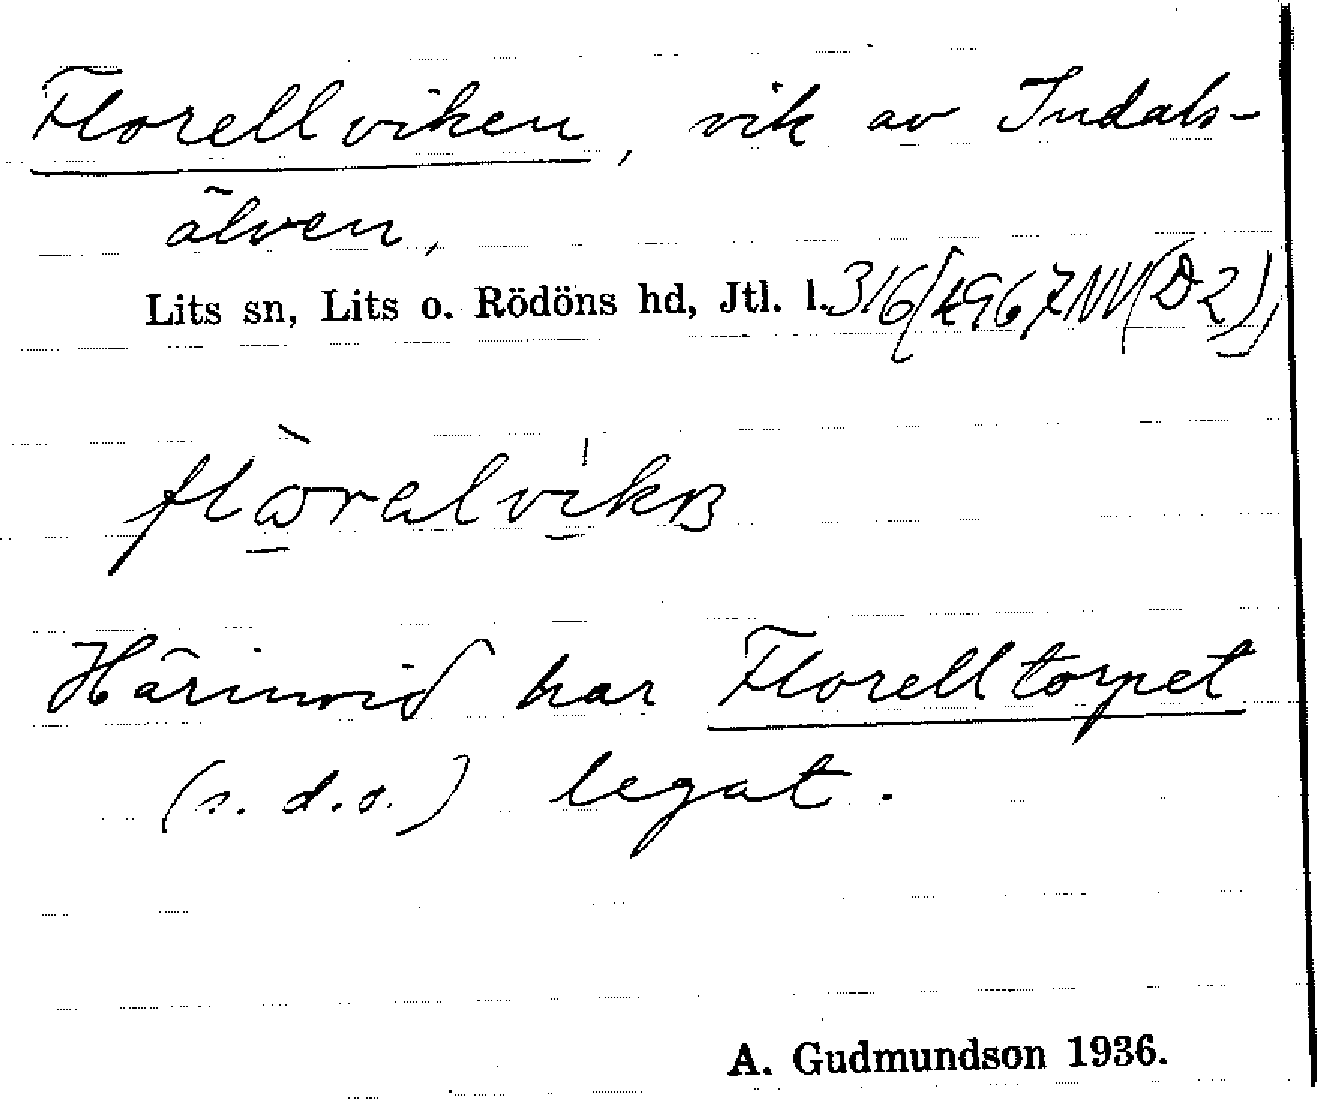 Florellviken, vik av Indals-
älven,
Lits sn, Lits o. Rödöns hd, Jtl. l.
Härinvid har Florelltorpet
(s. d. o.) legat.
A. Gudmundson 1936.